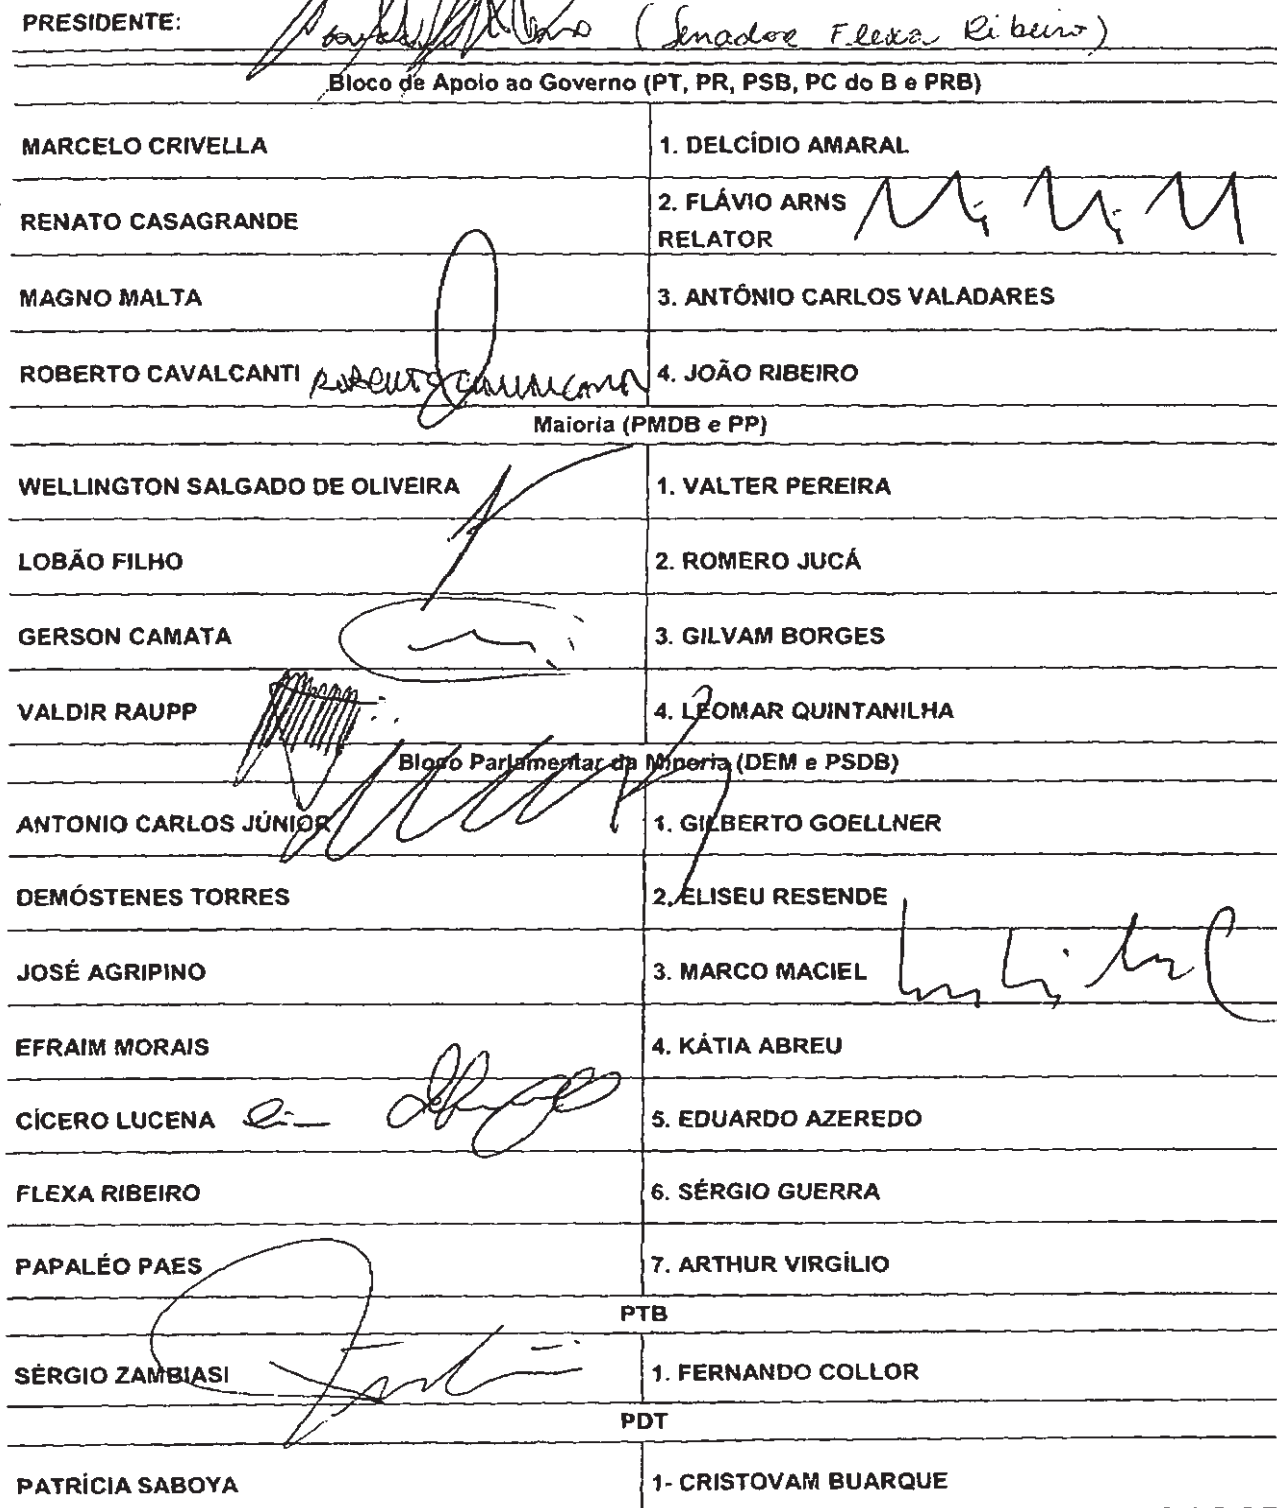 PRESIDENTE: (Senador Flexa Ribeiro)
Bloco de Apoio ao Governo (PT, PR, PSB, PC do B e PRB)
MARCELO CRIVELLA 1. DELCÍDIO AMARAL
RENATO CASAGRANDE 2. FLÁVIO ARNS
RELATOR
MAGNO MALTA 3. ANTÔNIO CARLOS VALADARES
ROBERTO CAVALCANTI Roberto Cavalcanti 4. JOÃO RIBEIRO
Maioria (PMDB e PP)
WELLINGTON SALGADO DE OLIVEIRA 1. VALTER PEREIRA
LOBÃO FILHO 2. ROMERO JUCÁ
GERSON CAMATA 3. GILVAM BORGES
VALDIR RAUPP 4. LEOMAR QUINTANILHA
Bloco Parlamentar da Minoria (DEM e PSDB)
ANTONIO CARLOS JÚNIOR 1. GILBERTO GOELLNER
DEMÓSTENES TORRES 2. ELISEU RESENDE
JOSÉ AGRIPINO 3. MARCO MACIEL
EFRAIM MORAIS 4. KÁTIA ABREU
CÍCERO LUCENA 5. EDUARDO AZEREDO
FLEXA RIBEIRO 6. SÉRGIO GUERRA
PAPALÉO PAES 7. ARTHUR VIRGÍLIO
PTB
SÉRGIO ZAMBIASI 1. FERNANDO COLLOR
PDT
PATRÍCIA SABOYA 1- CRISTOVAM BUARQUE